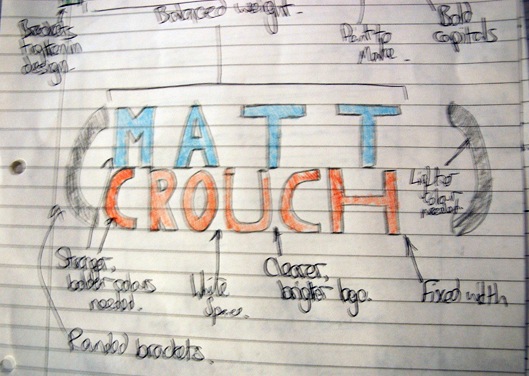 Brackets
tighten in
design.
Balanced weight.
Point to
Make.
Bold
capitals
MATT
CROUCH
Lighter
colour
needed.
Stronger,
bolder colours
needed.
White
Space.
Clearer,
brighter logo.
Fixed width
Rounded brackets.